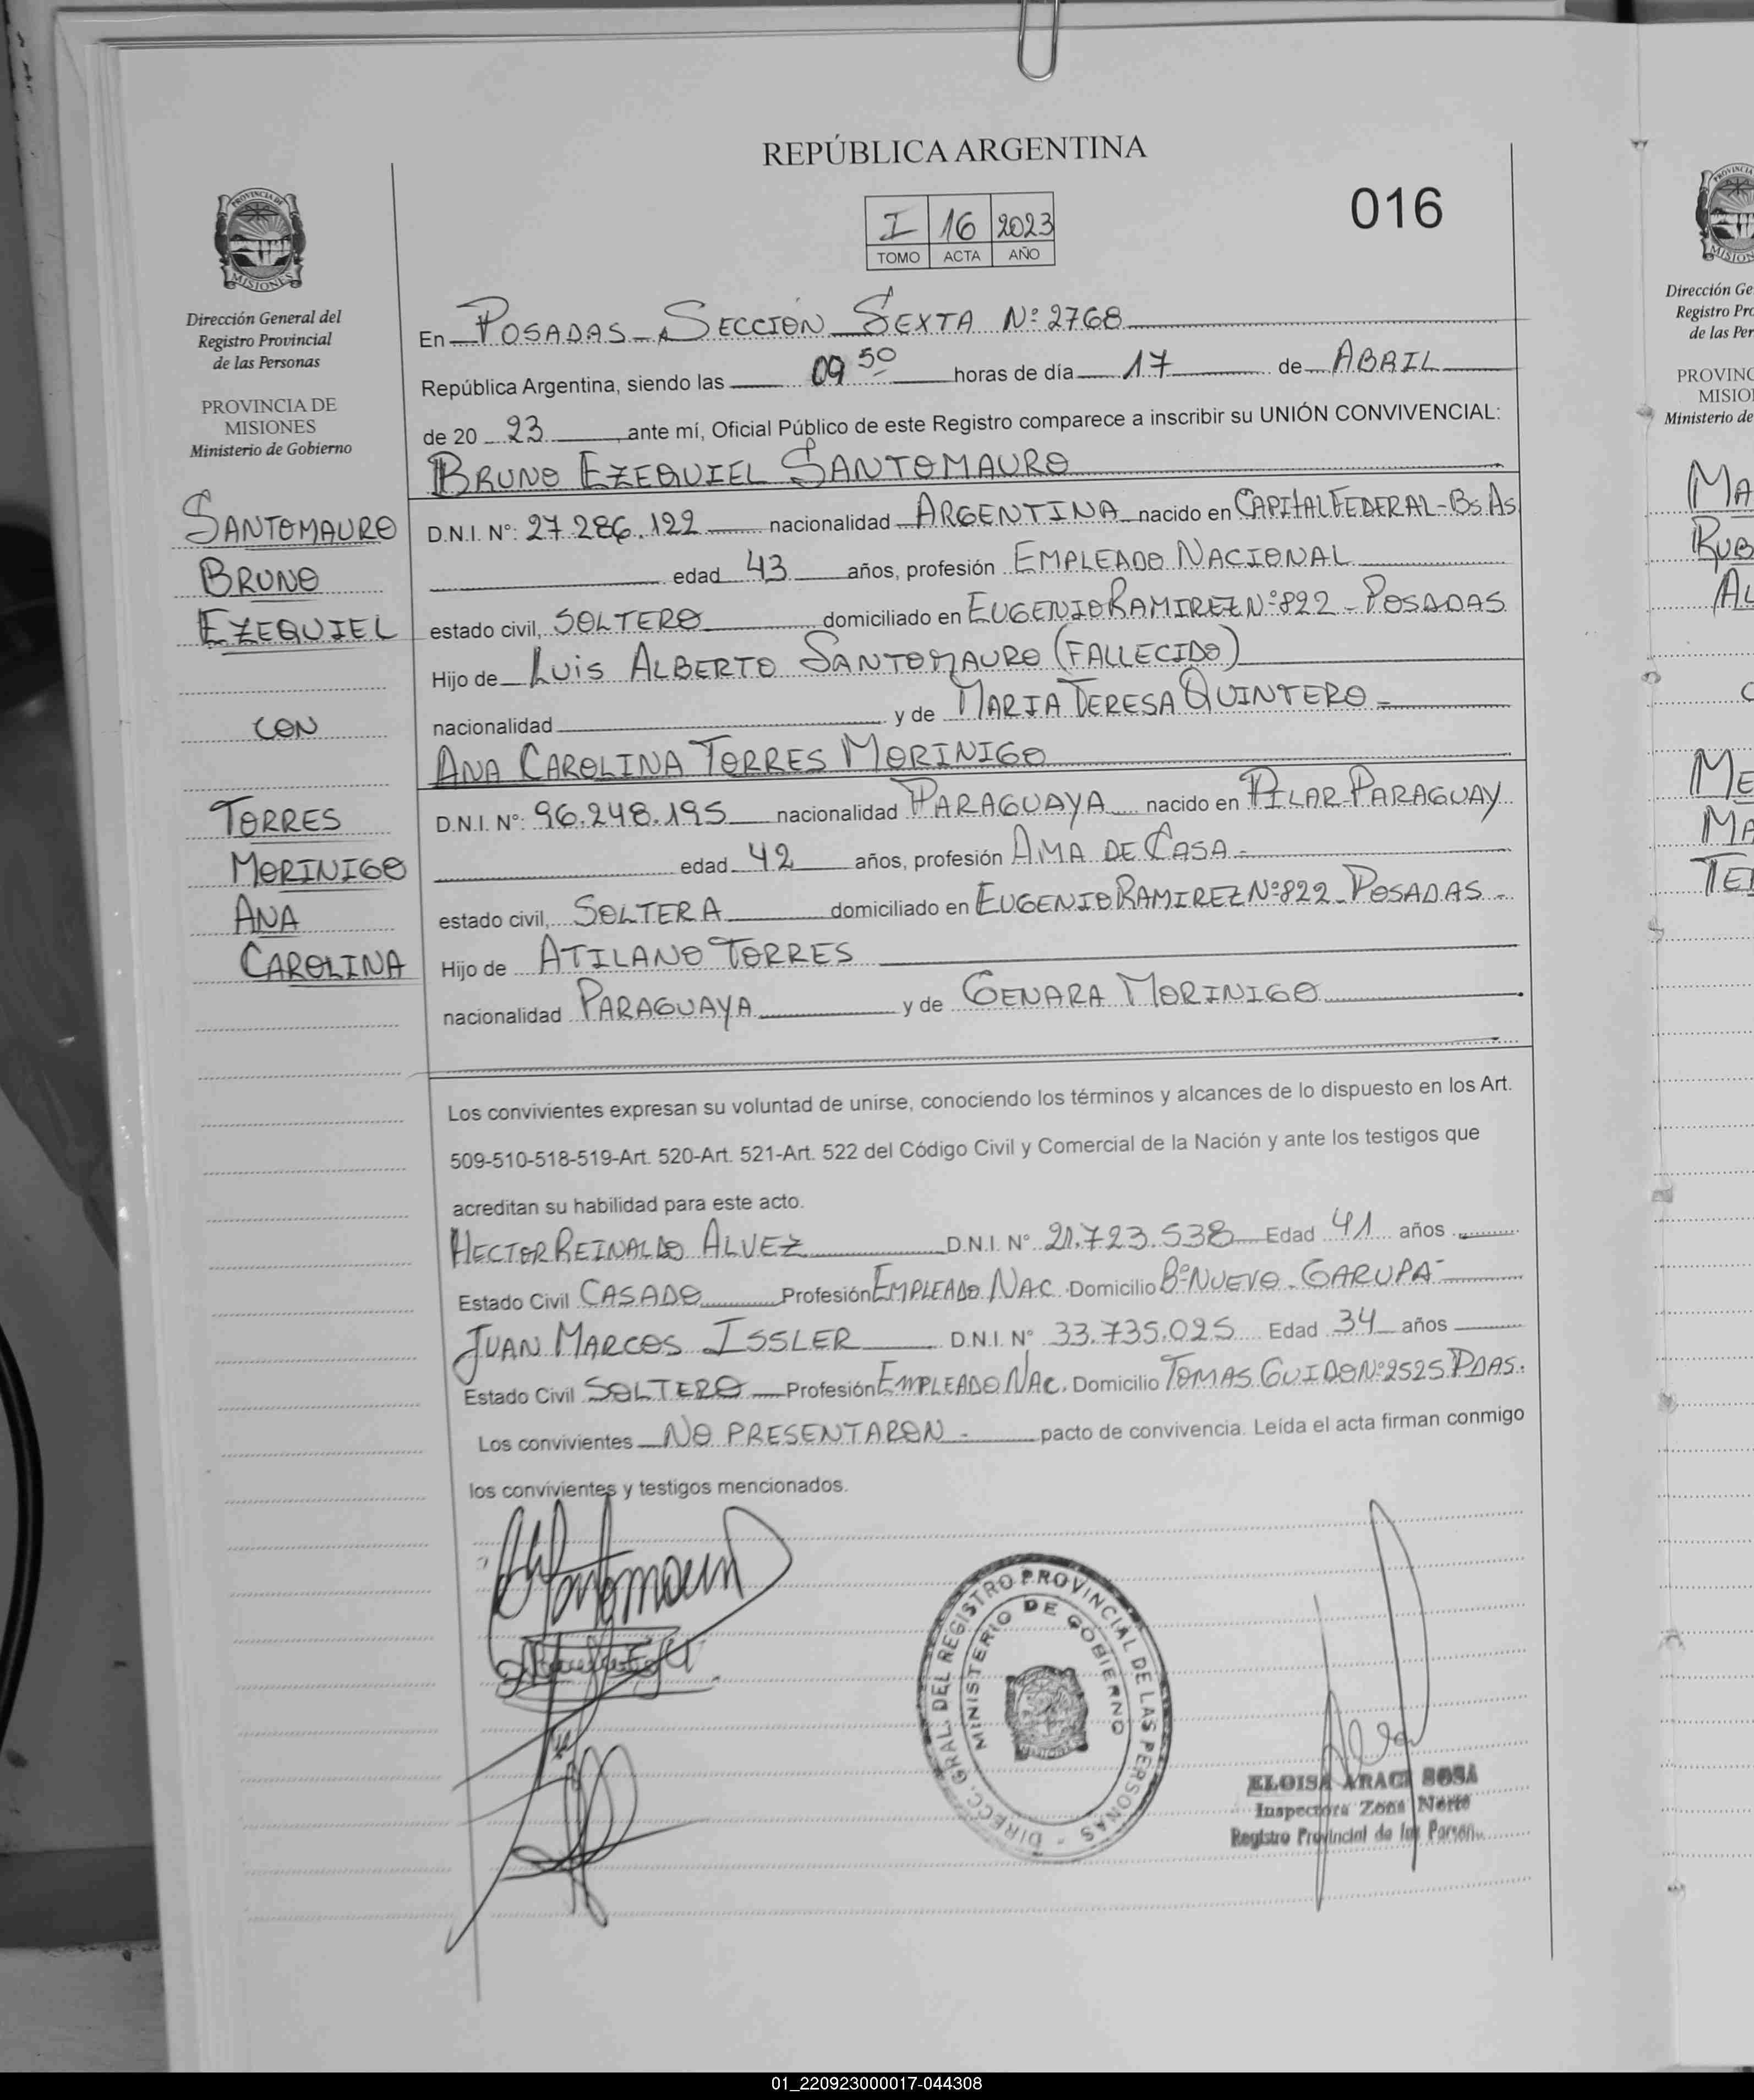 REPÚBLICA ARGENTINA
I 16 2023
TOMO ACTA AÑO
016
PROVINCIA DE
MISIONES
Dirección General del
Registro Provincial
de las Personas
PROVINCIA DE
MISIONES
Ministerio de Gobierno
SANTOMAURO
BRUNO
EZEQUIEL
CON
TORRES
MORINIGO
ANA
CAROLINA
En POSADAS - SECCIÓN SEXTA Nº 2768
República Argentina, siendo las 09 50 horas de día 17 de ABRIL
de 20 23, ante mí, Oficial Público de este Registro comparece a inscribir su UNIÓN CONVIVENCIAL:
BRUNO EZEQUIEL SANTOMAURO
D.N.I. Nº: 27.286.122 nacionalidad ARGENTINA nacido en CAPITAL FEDERAL - Bs As
edad 43 años, profesión EMPLEADO NACIONAL
estado civil, SOLTERO domiciliado en EUGENIO RAMIREZ Nº 822 - POSADAS
Hijo de LUIS ALBERTO SANTOMAURO (FALLECIDO)
nacionalidad y de MARIA TERESA QUINTERO -
ANA CAROLINA TORRES MORINIGO
D.N.I. Nº: 96.248.195 nacionalidad PARAGUAYA nacido en PILAR - PARAGUAY
edad 42 años, profesión AMA DE CASA -
estado civil, SOLTERA domiciliado en EUGENIO RAMIREZ Nº 822 - POSADAS -
Hijo de ATILANO TORRES
nacionalidad PARAGUAYA y de GENARA MORINIGO
Los convivientes expresan su voluntad de unirse, conociendo los términos y alcances de lo dispuesto en los Art.
509-510-518-519-Art. 520-Art. 521-Art. 522 del Código Civil y Comercial de la Nación y ante los testigos que
acreditan su habilidad para este acto.
HECTOR REINALDO ALVEZ D.N.I. Nº 21.723.538 Edad 41 años
Estado Civil CASADO Profesión EMPLEADO NAC. Domicilio Bº NUEVO - GARUPA -
JUAN MARCOS ISSLER D.N.I. Nº 33.735.025 Edad 34 años
Estado Civil SOLTERO Profesión EMPLEADO NAC. Domicilio TOMAS GUIDO Nº 2525 PDAS.
Los convivientes NO PRESENTARON - pacto de convivencia. Leída el acta firman conmigo
los convivientes y testigos mencionados.
DIRECC. GRAL. DEL REGISTRO PROVINCIAL DE LAS PERSONAS -
MINISTERIO DE GOBIERNO
ELOISA ARACI SOSA
Inspectora Zona Norte
Registro Provincial de las Person
Dirección Ge
Registro Pro
de las Per
PROVINC
MISIO
Ministerio de
MA
RUB
AL
ME
MA
TE
01_220923000017-044308